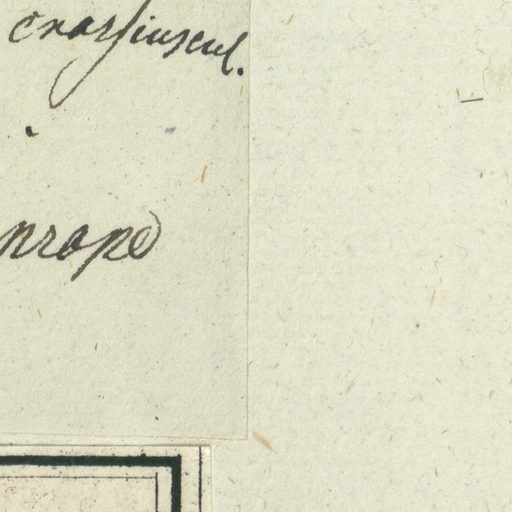 crassiuscul.
prope